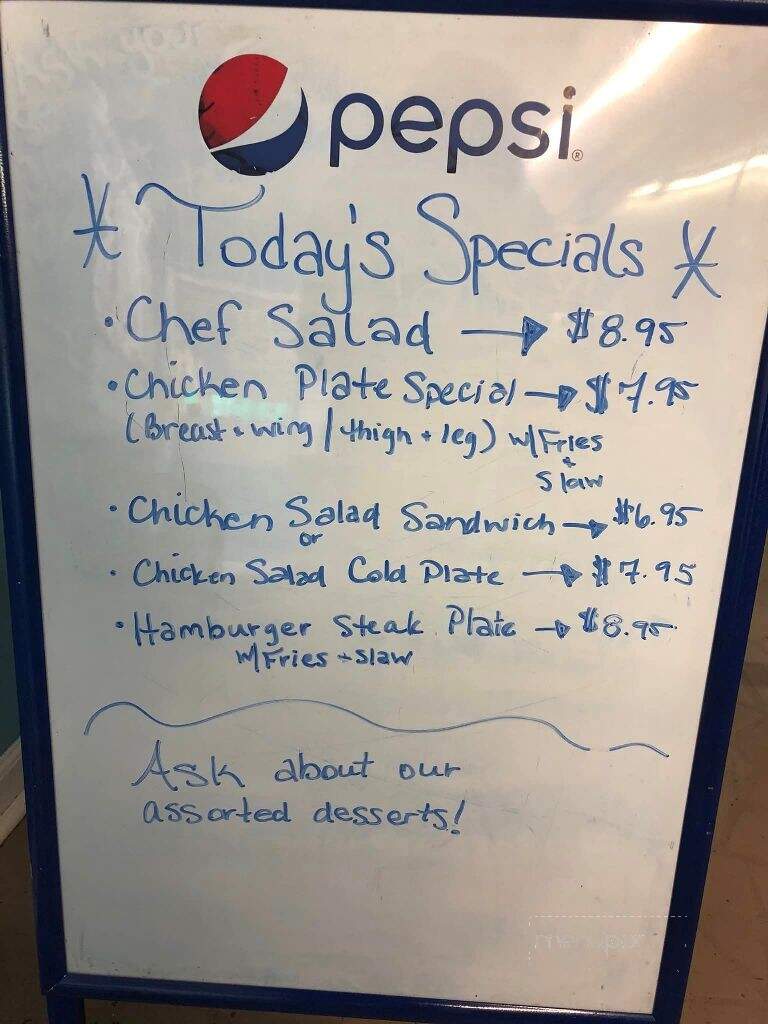 pepsi®
* Today's Specials *
• Chef Salad → $8.95
• Chicken Plate Special → $7.95
(Breast + wing / thigh + leg) w/Fries
+
Slaw
• Chicken Salad Sandwich → $6.95
or
• Chicken Salad Cold Plate → $7.95
• Hamburger Steak Plate → $8.95
w/Fries + Slaw
Ask about our
assorted desserts!
menupix